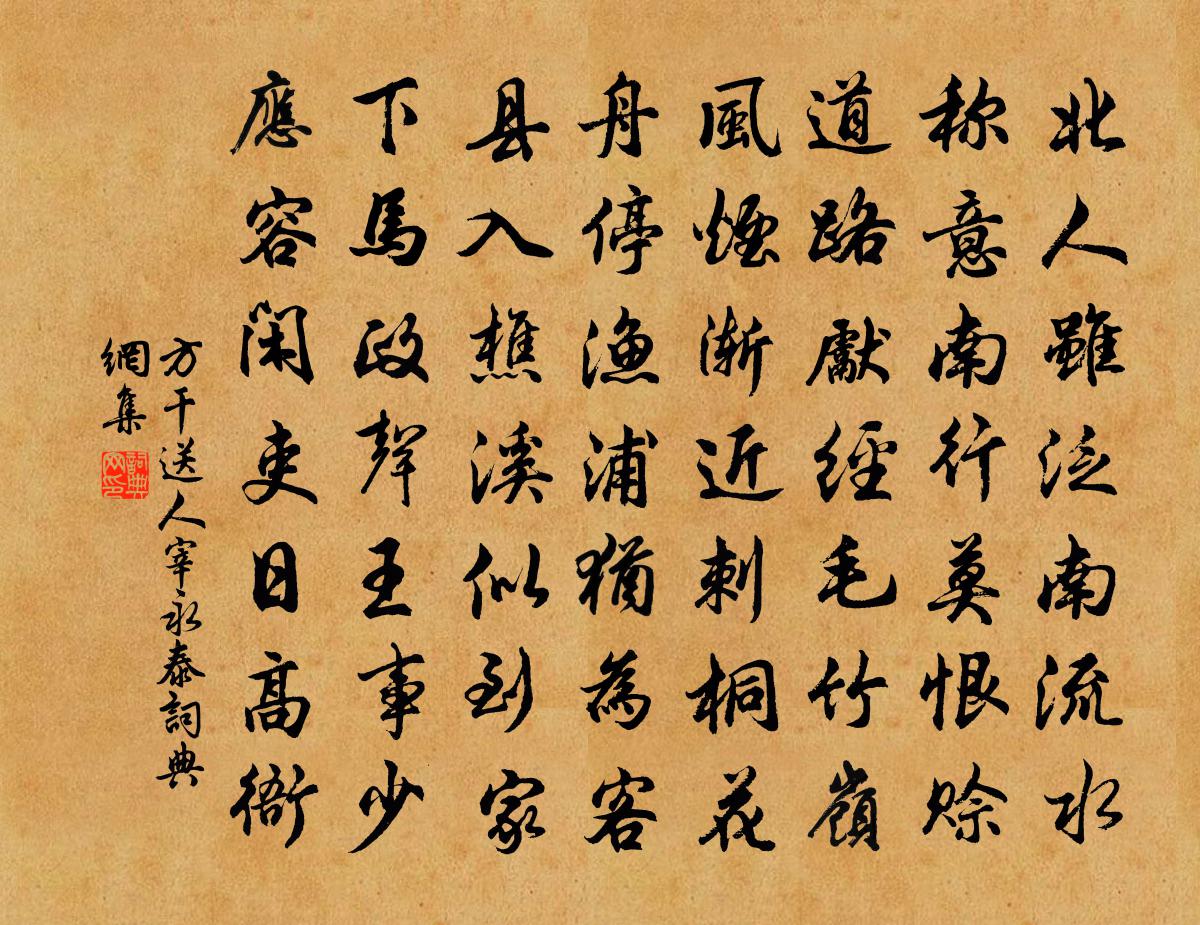 北人雖泛南流水
称意南行莫恨賒
道路獻經毛竹嶺
風煙漸近刺桐花
舟停漁浦猶為客
县入樵溪似到家
下馬政聲王事少
應容閑吏日高衙
方干送人宰永泰詞典
網集
詞典
网印